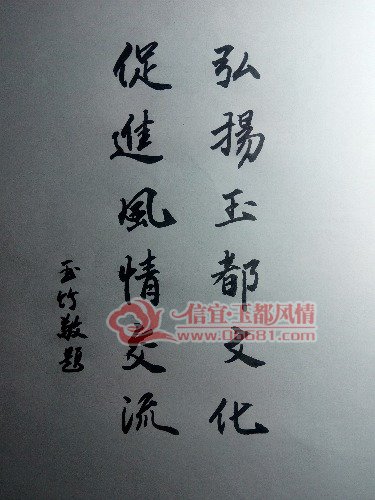 弘揚玉都文化
促進風情交流
玉竹敬題
信宜·玉都风情
www.06681.com